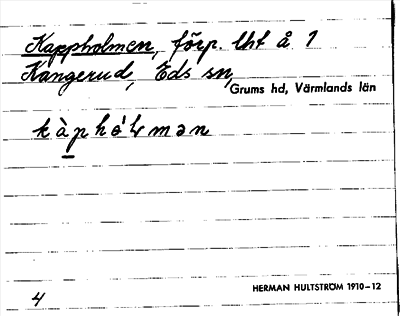 Kappholmen, förp. lht å. 1
Kangerud, Eds sn,
Grums hd, Värmlands län
kàphó̵lmən
HERMAN HULTSTRÖM 1910–12
4